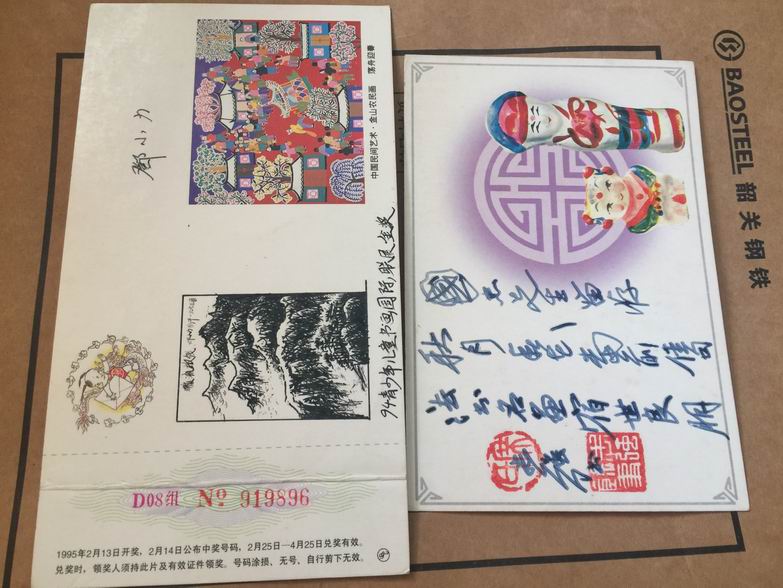 鄧小力
中国民间艺术·金山农民画 荡舟迎春
94青少年儿童书画国际联展金奖
D08组 Nº 919896
1995年2月13日开奖，2月14日公布中奖号码，2月25日—4月25日兑奖有效。
兑奖时，领奖人须持此片及有效证件领奖。号码涂损、无号、自行剪下无效。
國忠先生留存
秋月
法书名画宿世良朋
BAOSTEEL 韶关钢铁